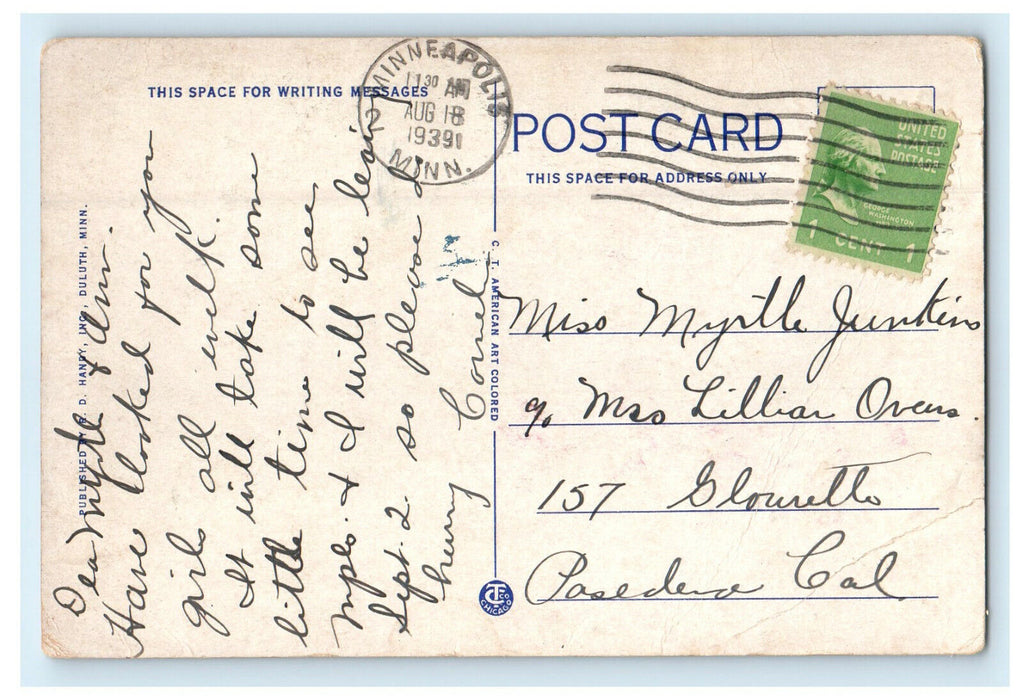 THIS SPACE FOR WRITING MESSAGES
MINNEAPOLIS
2
11 30 AM
AUG 18
1939
MINN.
POST CARD
THIS SPACE FOR ADDRESS ONLY
UNITED
STATES
POSTAGE
GEORGE
WASHINGTON
1 CENT 1
PUBLISHED BY D. HANDY, INC., DULUTH, MINN.
C. T. AMERICAN ART COLORED
CT CO
CHICAGO
Dear Myrtle & Ann.
Have looked for you
girls all week.
It will take some
little time to see
Mpls. & I will be leaving
Sept. 2 so please
hurry
Miss Myrtle Junkins
c/o Mrs Lillian Ovens.
157 Glouretto
Pasedena Cal.